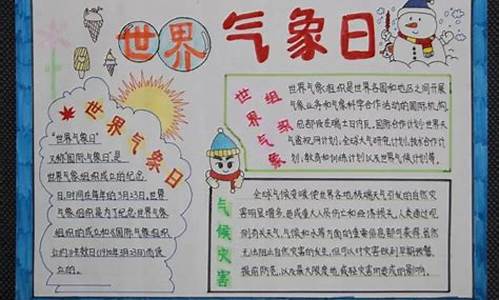 世界气象日
世界气象日
“世界气象日”
又称“国际气象日”,是
世界气象组织成立的纪念
日,时间在每年的3月23日。世界
气象组织是为了纪念世界气象
组织的成立和《国际气象组织
公约》生效日(1950年3月23日)而设
立的。
世界气象组织
世界气象组织是世界各国和地区之间开展
气象业务和气象科学合作活动的国际机构,
总部设在瑞士日内瓦。国际合作计划世界天
气监视网计划,全球大气研究计划,技术合作计
划,教育和训练计划以及世界气候计划等。
气候灾害
全球气候变暖使世界各地极端天气引发的自然灾
害明显增多,造成重大人员伤亡和经济损失。人类通过观
测有关天气、气候和水等方面的重要信息都可获得。虽然
无法阻止自然灾害的发生,但可以对灾害做到早期预警、
提前防范,以及最大限度地减轻灾害所造成的影响。